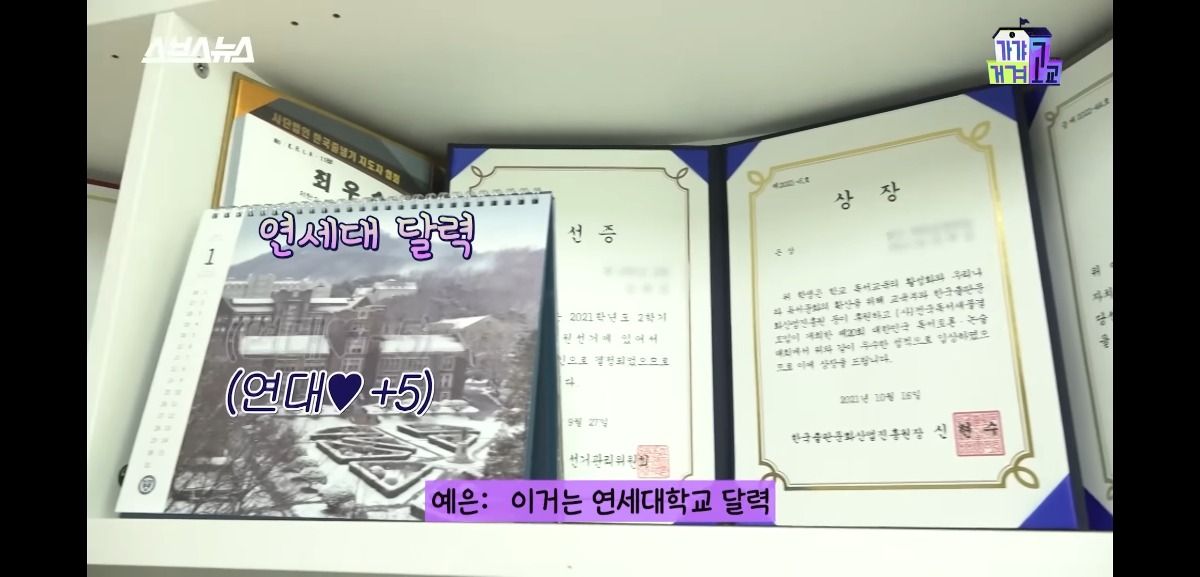 스브스뉴스
가갸
거겨고교
사단법인 한국줄넘기 지도자 협회
최우수
연세대 달력
1
(연대♥ +5)
선 증
2021학년도 2학기
원선거에 있어서
인으로 결정되었으므로
다.
9월 27일
선거관리위원회
상 장
은 상
위 학생은 학교 독서교육의 활성화와 우리나
라 독서문화의 확산을 위해 교육부와 한국출판문
화산업진흥원 등이 후원하고 (사)전국독서새물결
모임이 개최한 제20회 대한민국 독서토론·논술
대회에서 위와 같이 우수한 성적으로 입상하였으
므로 이에 상장을 드립니다.
2021년 10월 16일
한국출판문화산업진흥원장 신 현 수
예은: 이거는 연세대학교 달력